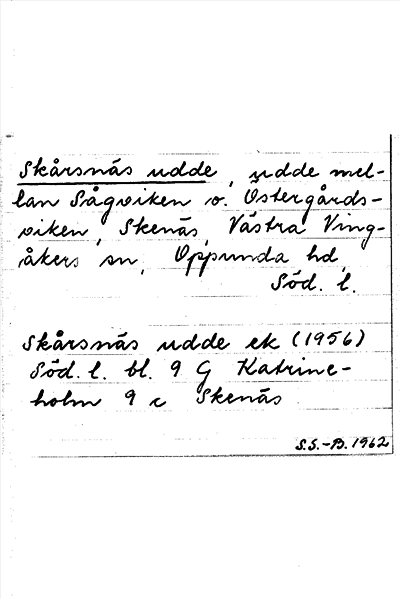 Skårsnäs udde, udde mel-
lan Sågviken o. Östergårds-
viken, Skenäs, Västra Ving-
åkers sn, Oppunda hd,
Söd. l.
Skårsnäs udde ek (1956)
Söd. l. bl. 9 G Katrine-
holm 9 c Skenäs
S.S.-B. 1962